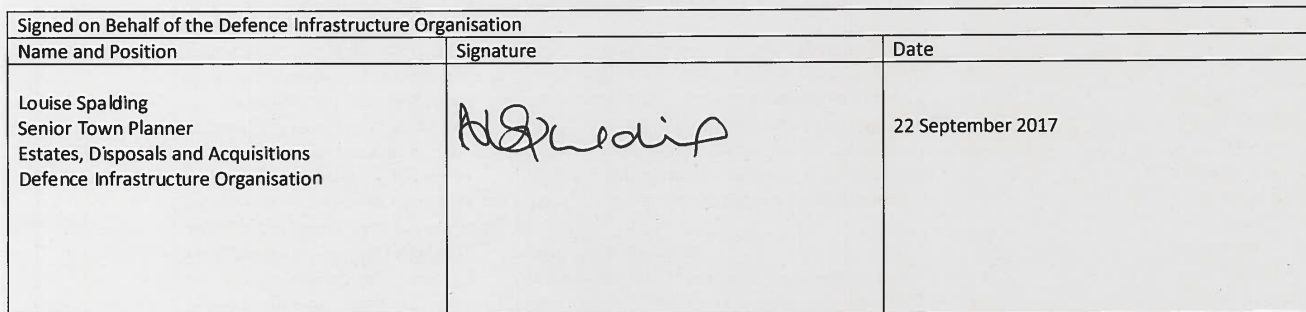 Signed on Behalf of the Defence Infrastructure Organisation
Name and Position
Signature
Date
Louise Spalding
Senior Town Planner
Estates, Disposals and Acquisitions
Defence Infrastructure Organisation
22 September 2017